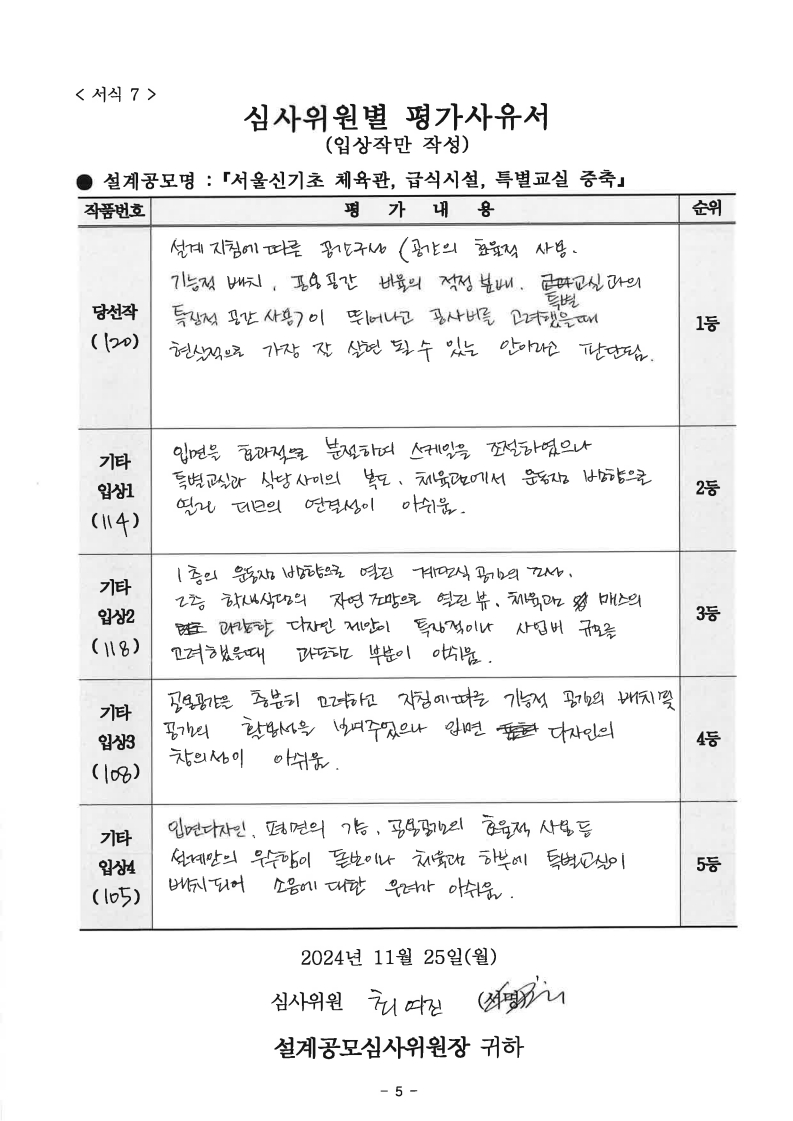 < 서식 7 >
심사위원별 평가사유서
(입상작만 작성)
● 설계공모명 : 『서울신기초 체육관, 급식시설, 특별교실 증축』
작품번호 평 가 내 용 순위
당선작
(120)
설계 지침에 따른 공간구성 (공간의 효율적 사용.
기능적 배치, 공용공간 비율의 적정 분배. 교실과의
특별
특징적 공간 사용)이 뛰어나고 공사비를 고려했을때
현실적으로 가장 잘 실현 될 수 있는 안이라고 판단됨.
1등
기타
입상1
(114)
입면을 효과적으로 분절하며 스케일을 조절하였으나
특별교실과 식당 사이의 복도, 체육관에서 운동장 방향으로
열린 데크의 연결성이 아쉬움.
2등
기타
입상2
(118)
1층의 운동장 방향으로 열린 계단식 공간의 구성,
2층 학생식당의 자연 조망으로 열린 뷰, 체육관 매스의
과감한 디자인 제안이 특징적이나 사업비 규모를
고려했을때 과도하고 부분이 아쉬움.
3등
기타
입상3
(108)
공용공간을 충분히 고려하고 지침에 따른 기능적 공간의 배치 및
공간의 활용성을 보여주었으나 입면 디자인의
창의성이 아쉬움.
4등
기타
입상4
(105)
입면디자인, 평면의 기능, 공용공간의 효율적 사용 등
설계안의 우수함이 돋보이나 체육관 하부에 특별교실이
배치되어 소음에 대한 우려가 아쉬움.
5등
2024년 11월 25일(월)
심사위원 최여진 (서명)
설계공모심사위원장 귀하
- 5 -